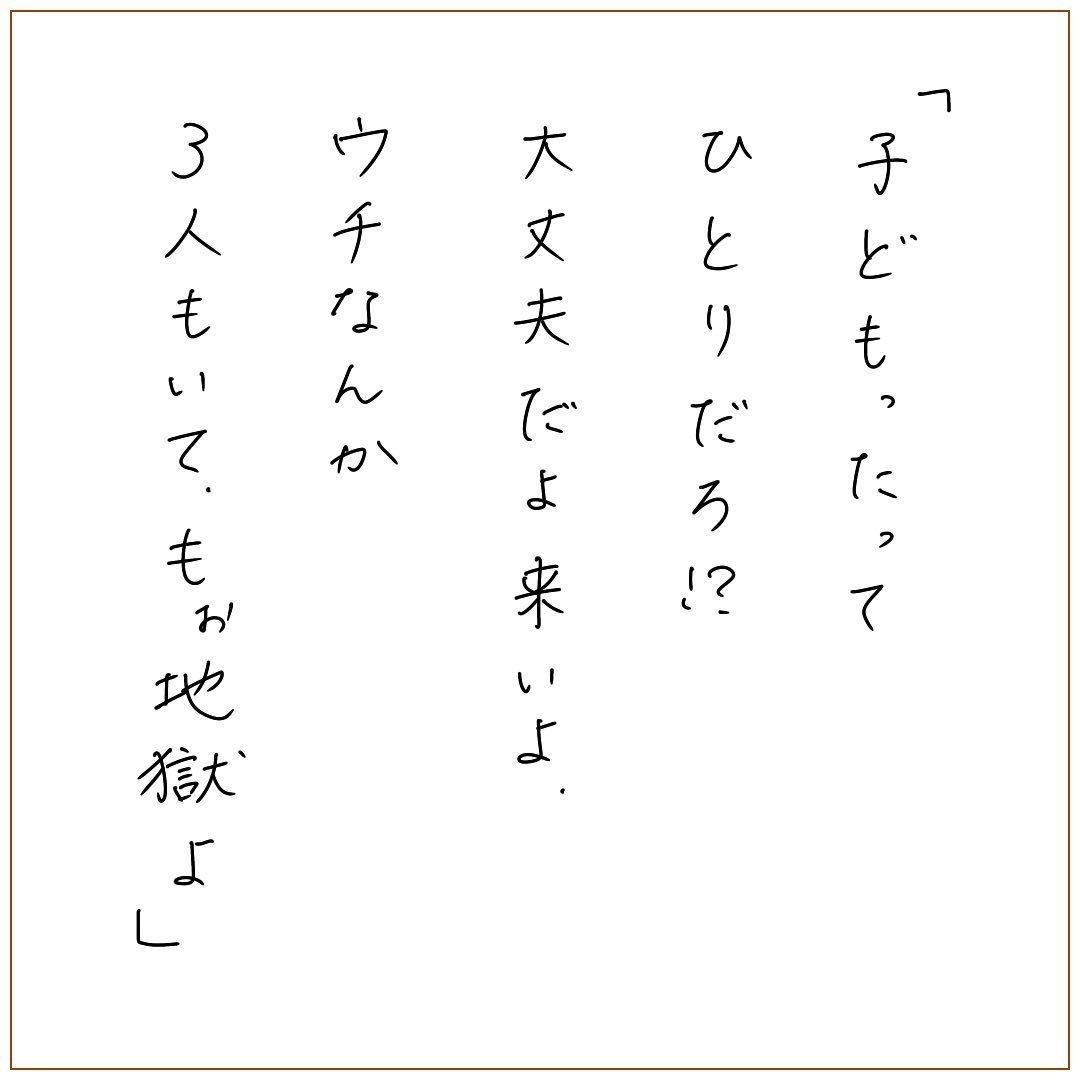 「子どもったって
ひとりだろ!?
大丈夫だよ来いよ.
ウチなんか
3人もいて.もぉ地獄よ」